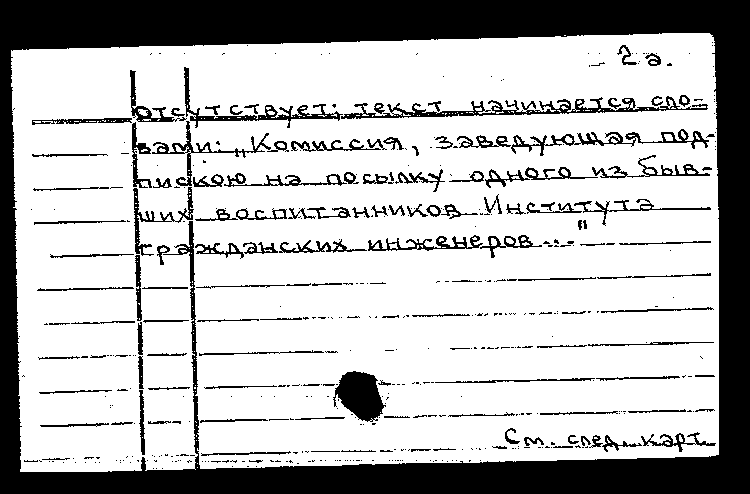 – 2 а.
отсутствует; текст начинается сло-
вами: „Комиссия, заведующая под-
пискою на посылку одного из быв-
ших воспитанников Института
гражданских инженеров..."
См. след. карт.